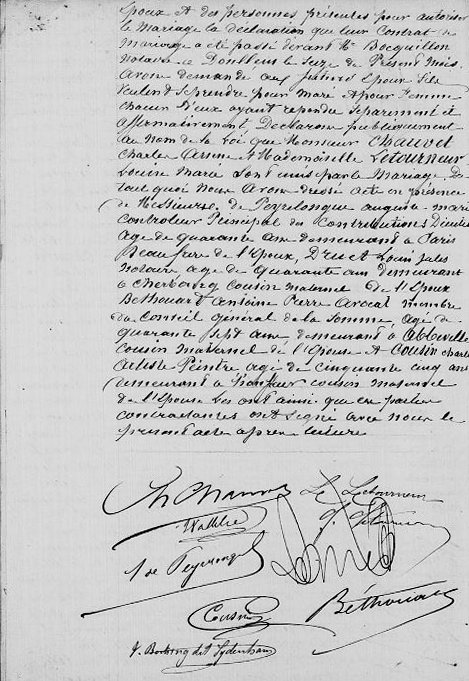 Epoux et des personnes présentes pour autoriser
le mariage la déclaration que leur Contrat de
mariage a été passé devant Me Bocquillon
Notaire à Doullens le seize de Présent mois.
Avons demandé aux futurs Epoux s'ils
veulent se prendre pour Mari et pour Femme
chacun d'eux ayant répondu séparément et
affirmativement, Déclarons publiquement
au nom de la Loi que Monsieur Chauvet
Charles Arsène et Mademoiselle Letourneur
Louise Marie sont unis par le Mariage. De
tout quoi Nous avons dressé acte en présence
de Messieurs de Peyrelongue auguste marie
Controleur Principal des Contributions Directes
agé de quarante ans demeurant à Paris
Beau frère de l'Epoux, Druet Louis Jules
Notaire agé de quarante ans demeurant
à Cherbourg Cousin maternel de l'Epoux
Bethouart Antoine Pierre Avocat membre
du Conseil général de la Somme, agé de
quarante sept ans, demeurant à Abbeville
cousin maternel de l'Epouse et Cousin Charles
Artiste Peintre agé de cinquante cinq ans
demeurant à cousin maternel
de l'Epouse Les ont ainsi que les parties
contractantes ont signé avec nous le
présent acte après lecture
L. Letourneur
A de Peyrelongue
Cousin
Béthouart